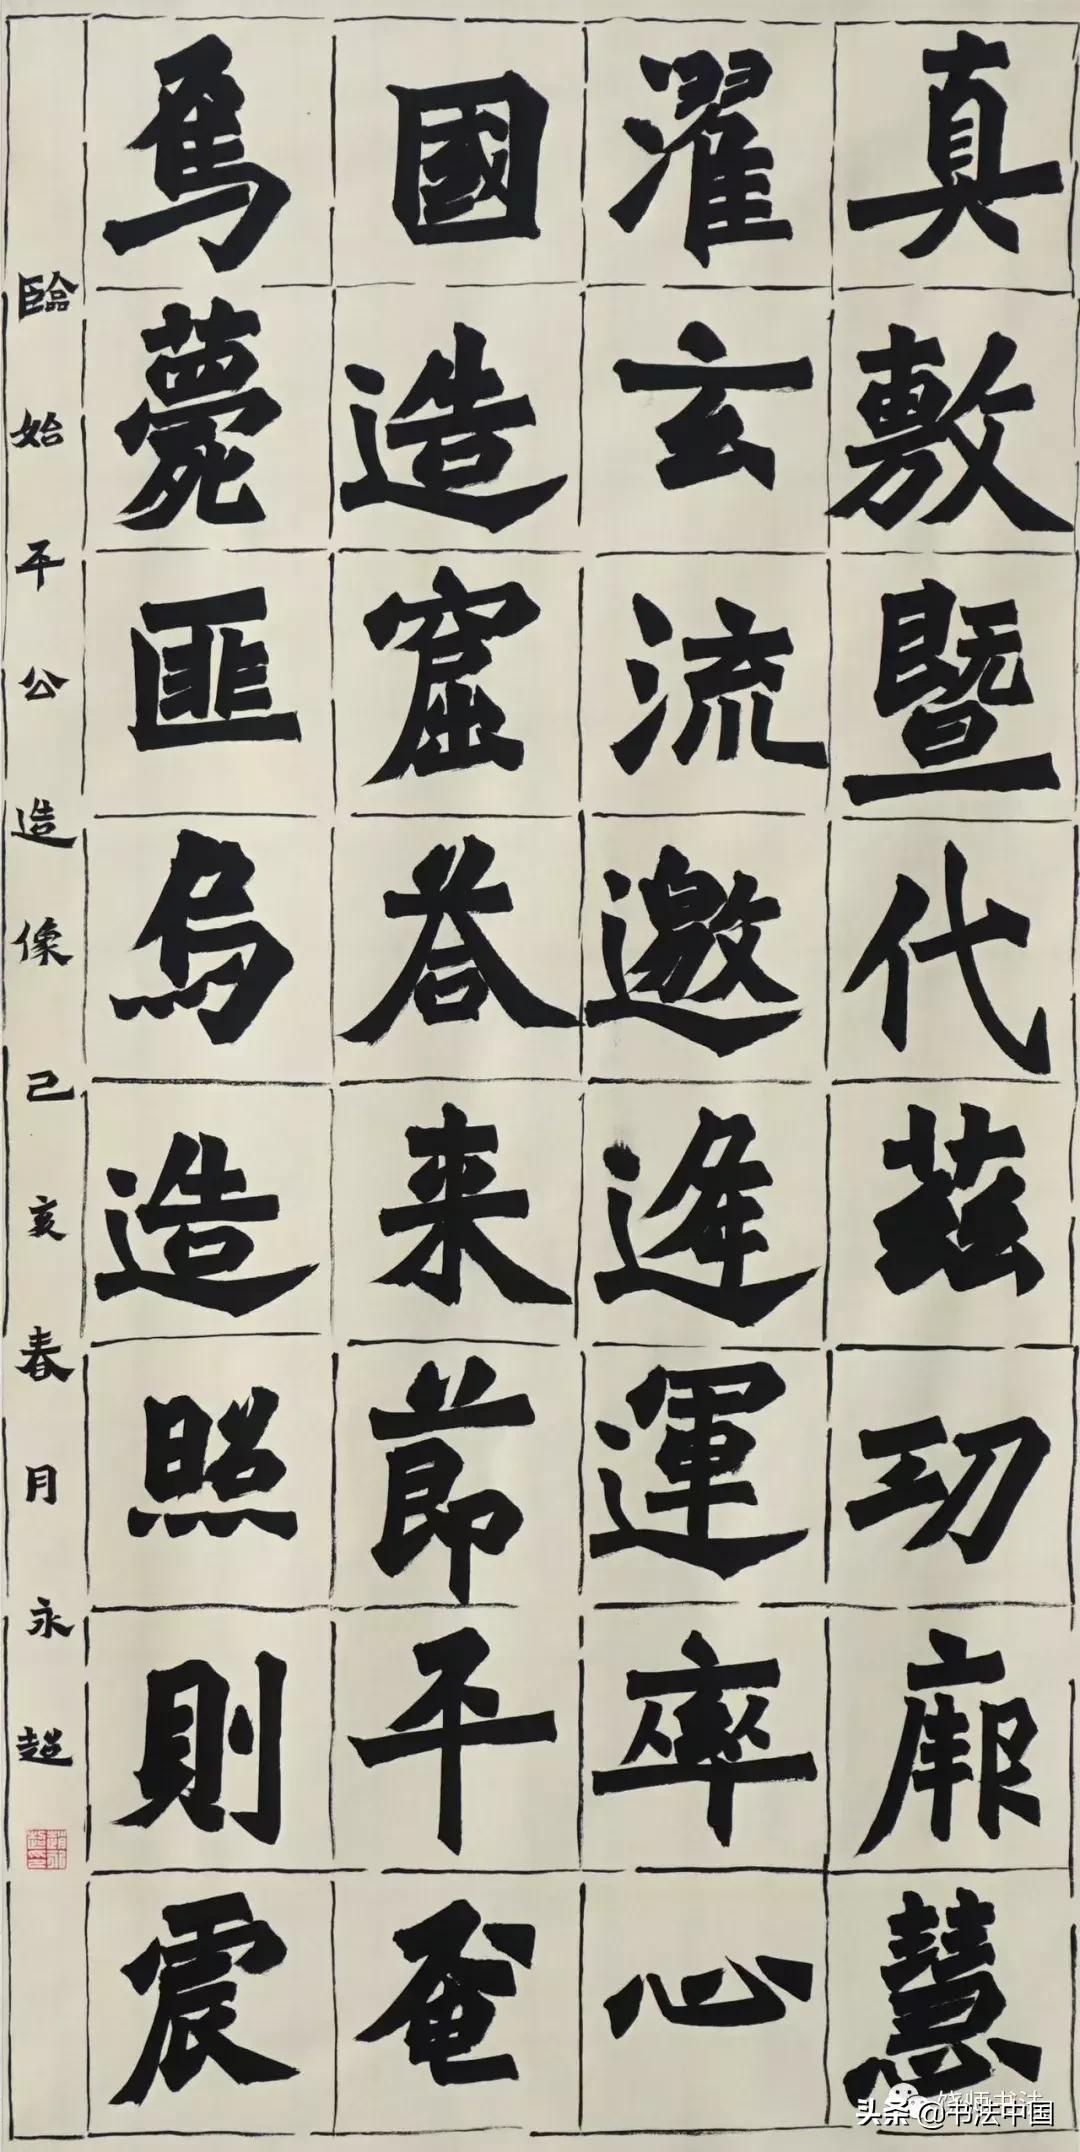 真敷暨代茲功廓慧
濯玄流邀逢運率心
國造窟荅来節平奄
焉薨匪烏造照則震
臨始平公造像己亥春月永超
饶师书法
头条@书法中国